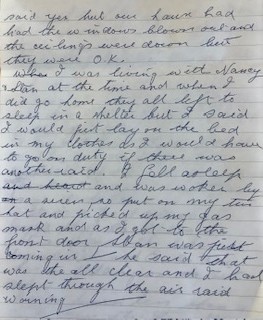 said yes but our house had
had the windows blown out and
the ceilings were down but
they were O.K.
when I was living with Nancy
Stan at the time and when I
did go home they all left to
sleep in a shelter but I said
I would just lay on the bed
in my clothes as I would have
to go on duty if there was
another raid. I fell asleep
and was woken by
a siren so put on my tin
hat and picked up my gas
mask and as I got to the
front door Stan was just
coming in he said that
was the all clear and I had
slept through the air raid
warning